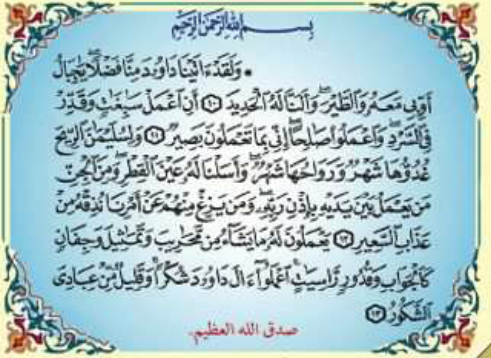 بِسْمِ اللَّهِ الرَّحْمَٰنِ الرَّحِيمِ
۞ وَلَقَدْ ءَاتَيْنَا دَاوُۥدَ مِنَّا فَضْلًا ۖ يَٰجِبَالُ
أَوِّبِى مَعَهُۥ وَالطَّيْرَ ۖ وَأَلَنَّا لَهُ الْحَدِيدَ ١٠ أَنِ اعْمَلْ سَٰبِغَٰتٍ وَقَدِّرْ
فِى السَّرْدِ ۖ وَاعْمَلُوا صَٰلِحًا ۖ إِنِّى بِمَا تَعْمَلُونَ بَصِيرٌ ١١ وَلِسُلَيْمَٰنَ الرِّيحَ
غُدُوُّهَا شَهْرٌ وَرَوَاحُهَا شَهْرٌ ۖ وَأَسَلْنَا لَهُۥ عَيْنَ الْقِطْرِ ۖ وَمِنَ الْجِنِّ
مَن يَعْمَلُ بَيْنَ يَدَيْهِ بِإِذْنِ رَبِّهِۦ ۖ وَمَن يَزِغْ مِنْهُمْ عَنْ أَمْرِنَا نُذِقْهُ مِنْ
عَذَابِ السَّعِيرِ ١٢ يَعْمَلُونَ لَهُۥ مَا يَشَآءُ مِن مَّحَٰرِيبَ وَتَمَٰثِيلَ وَجِفَانٍ
كَالْجَوَابِ وَقُدُورٍ رَّاسِيَٰتٍ ۚ اعْمَلُوٓا ءَالَ دَاوُۥدَ شُكْرًا ۚ وَقَلِيلٌ مِّنْ عِبَادِىَ
الشَّكُورُ ١٣
صدق الله العظيم.